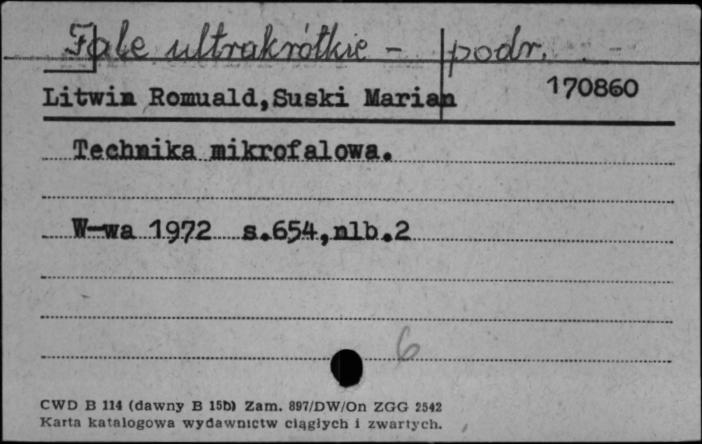 Fale ultrakrótkie - podr.
Litwin Romuald,Suski Marian 170860
Technika mikrofalowa.
W-wa 1972 s.654,nlb.2
6
CWD B 114 (dawny B 15b) Zam. 897/DW/On ZGG 2542
Karta katalogowa wydawnictw ciągłych i zwartych.